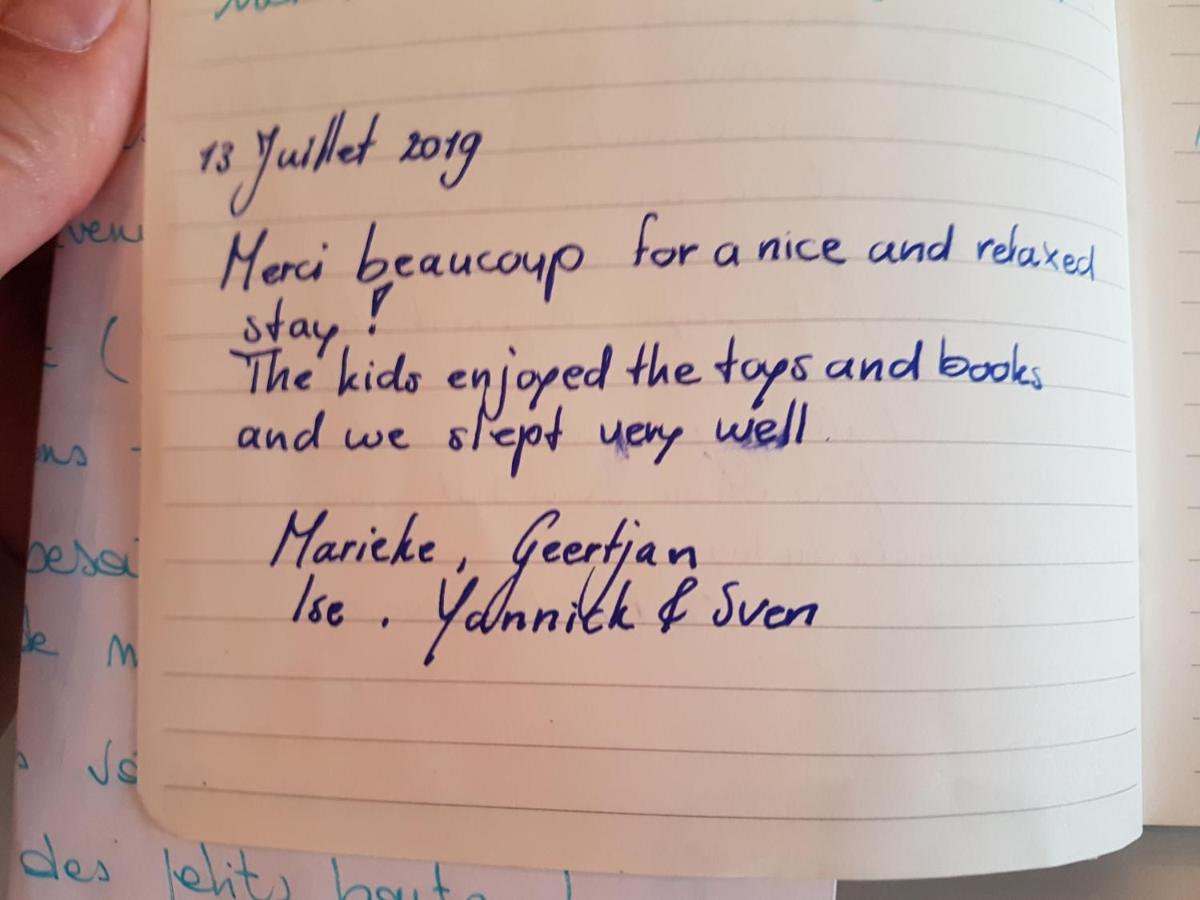 13 Juillet 2019
Merci beaucoup for a nice and relaxed
stay!
The kids enjoyed the toys and books
and we slept very well.
Marieke, Geertjan
Ise. Yannick & Sven
des petits bouts !